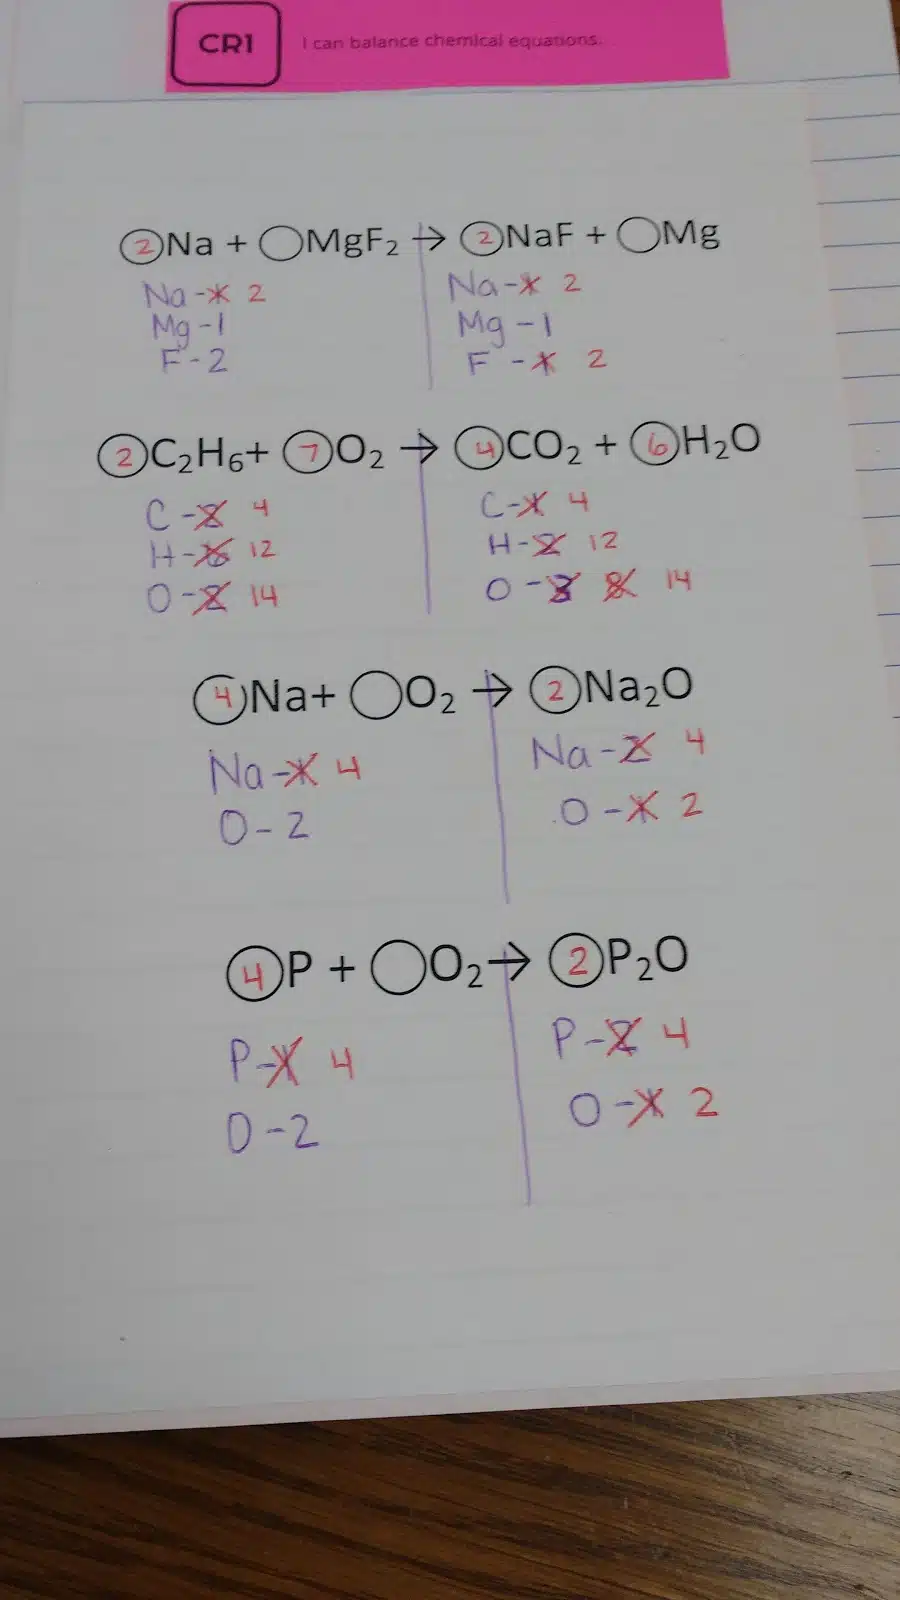 CR1 I can balance chemical equations.
②Na + ◯MgF₂ → ②NaF + ◯Mg
Na - 1 2 Na - 1 2
Mg - 1 Mg - 1
F - 2 F - 1 2
②C₂H₆+ ⑦O₂ → ④CO₂ + ⑥H₂O
C - 2 4 C - 1 4
H - 6 12 H - 2 12
O - 2 14 O - 3 8 14
④Na+ ◯O₂ → ②Na₂O
Na - 1 4 Na - 2 4
O - 2 O - 1 2
④P + ◯O₂ → ②P₂O
P - 1 4 P - 2 4
O - 2 O - 1 2